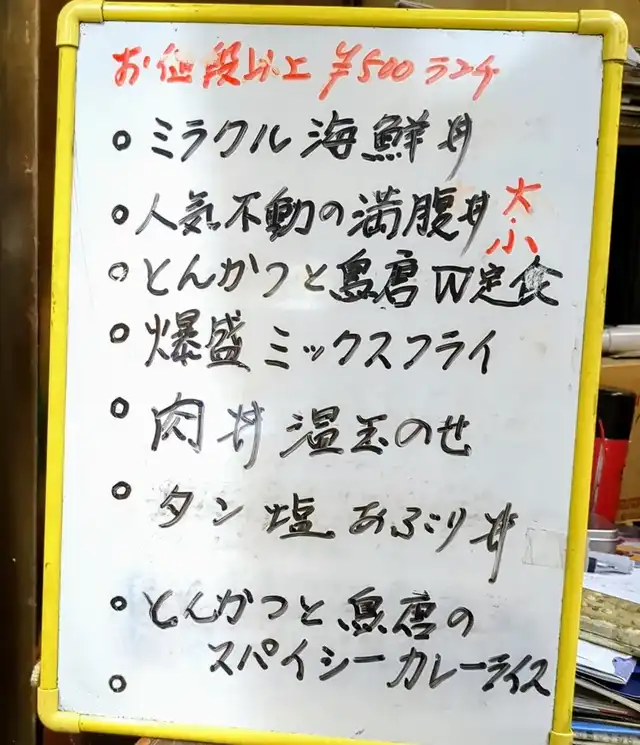 お値段以上 ¥500 ランチ
○ ミラクル 海鮮丼
○ 人気不動の満腹丼 大 小
○ とんかつと鳥唐W定食
○ 爆盛 ミックスフライ
○ 肉丼 温玉のせ
○ タン塩 あぶり丼
○ とんかつと鳥唐の
スパイシーカレーライス
○